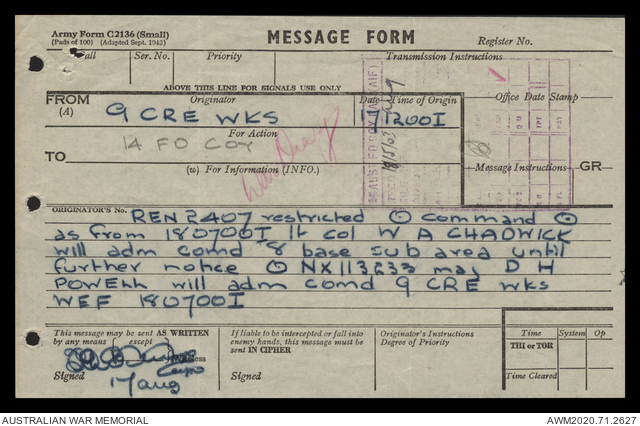 Army Form C2136 (Small)
(Pads of 100) (Adapted Sept. 1942)
MESSAGE FORM
Register No.
Call
Ser. No.
Priority
Transmission Instructions
ABOVE THIS LINE FOR SIGNALS USE ONLY
FROM
(A)
Originator
Date
Time of Origin
Office Date Stamp
9 CRE WKS
1200I
For Action
14 FD COY
TO
(W) For Information (INFO.)
Message Instructions
GR
War Diary
ORIGINATOR'S No.
REN 2407 restricted ⊙ command ⊙
as from 180700I lt col W A CHADWICK
will adm comd 8 base sub area until
further notice ⊙ NX113233 maj D H
POWELL will adm comd 9 CRE wks
WEF 180700I
This message may be sent AS WRITTEN
by any means
except
Wireless
Signed
17 aug
If liable to be intercepted or fall into
enemy hands, this message must be
sent IN CIPHER
Signed
Originator's Instructions
Degree of Priority
Time
System
Op
THI or TOR
Time Cleared
AUSTRALIAN WAR MEMORIAL
AWM2020.71.2627